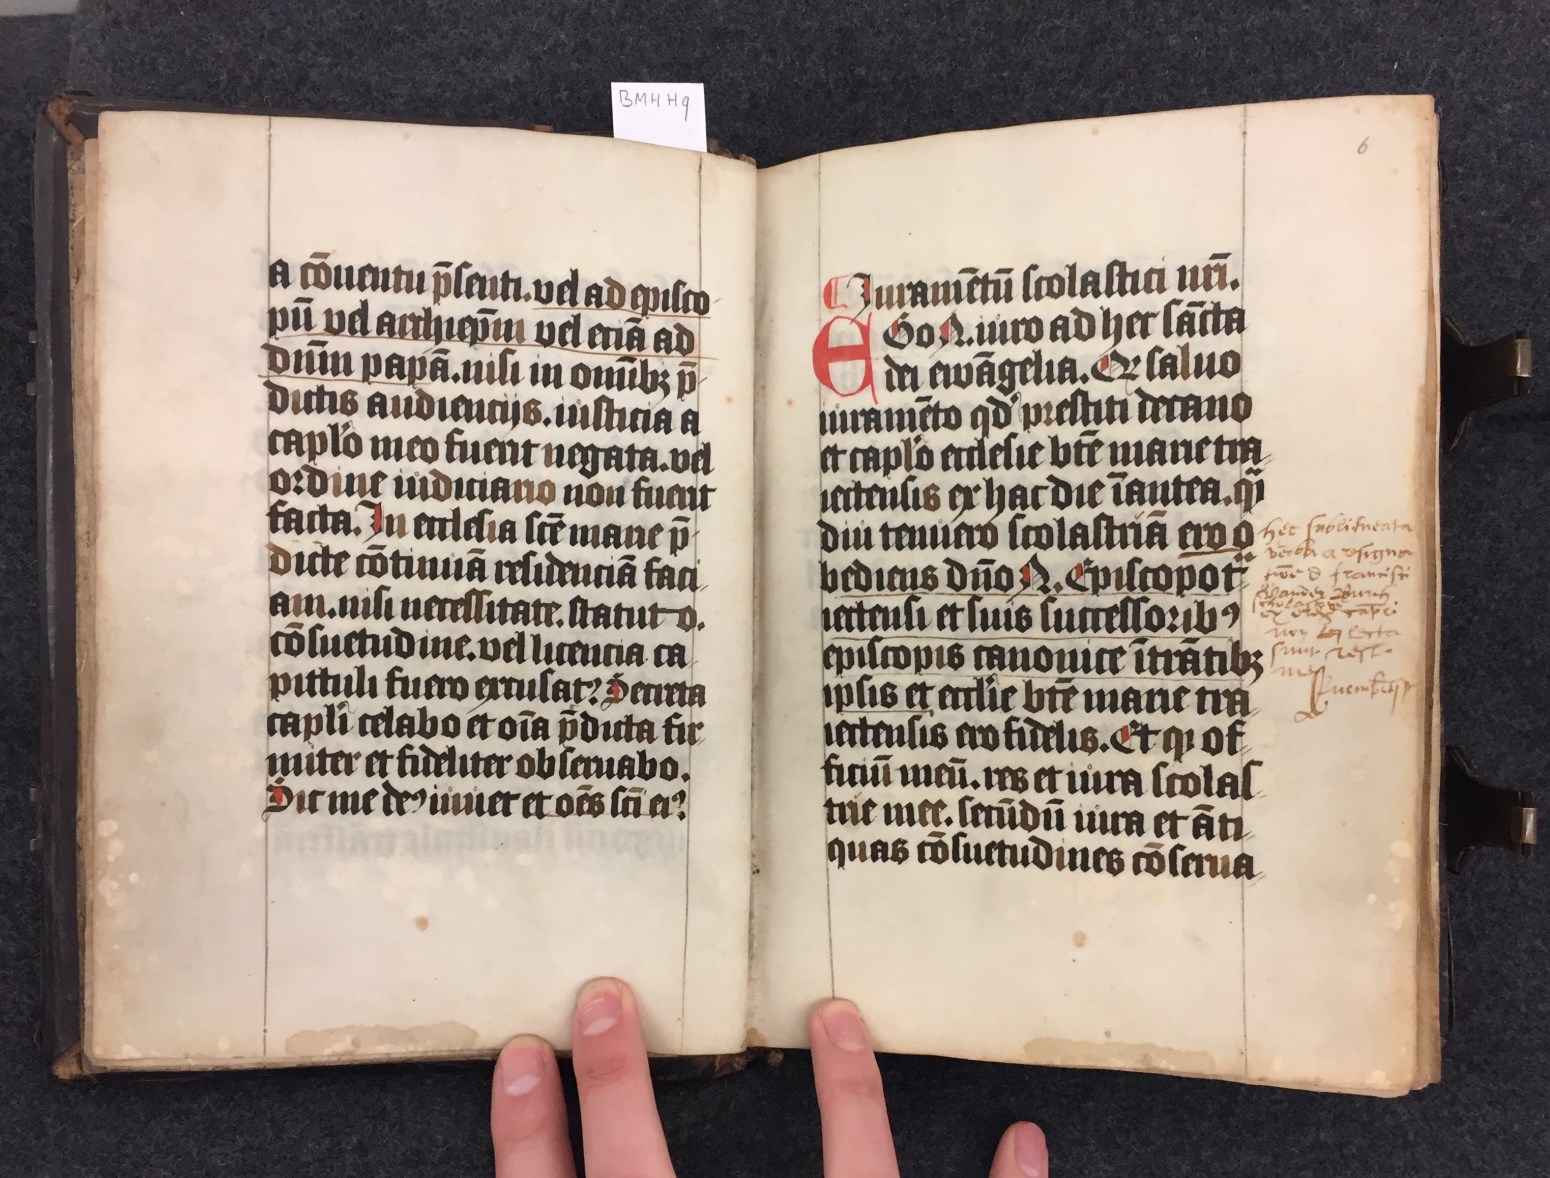 BM4 H9
a cōuentu p̄senti. vel ad episco-
pū vel archiep̄m vel eciā ad
dn̄m papā. nisi in om̄ibꝫ p̄-
dictis audiencijs. iusticia a
capl'o meo fuerit negata. vel
ordine iudiciario non fuerit
facta. In ecclesia sc̄e marie p̄-
dicte cōtinuā residenciā faci-
am. nisi necessitate. statuto.
cōsuetudine. vel licencia ca-
pittuli fuero excusatꝰ Secreta
capl'i celabo et oīa p̄dicta fir-
miter et fideliter obseruabo.
Sic me deꝰ iuuet et oēs sc̄i eiꝰ
6
Iuramētū scolastici nr̄i.
EGo N. iuro ad hec sācta
dei ewāgelia. Qꝫ saluo
iuramēto qd' prestiti decano
et capl'o ecclesie bt̄e marie tra-
iectensis ex hac die īantea. qͣm
diu tenuero scolastriā ero o-
bediens dn̄o N. Episcopo t͛-
iectensi et suis successoribꝰ
episcopis canonice ītrātibꝫ
ipsis et eccl'ie bt̄e marie tra-
iectensis ero fidelis. Et qꝫ of-
ficiū meū. res et iura scolas-
trie mee. secūdū iura et āti-
quas cōsuetudines cōserua-
hec sublineata
verba a resigna
d francisci
non lecta
sunt